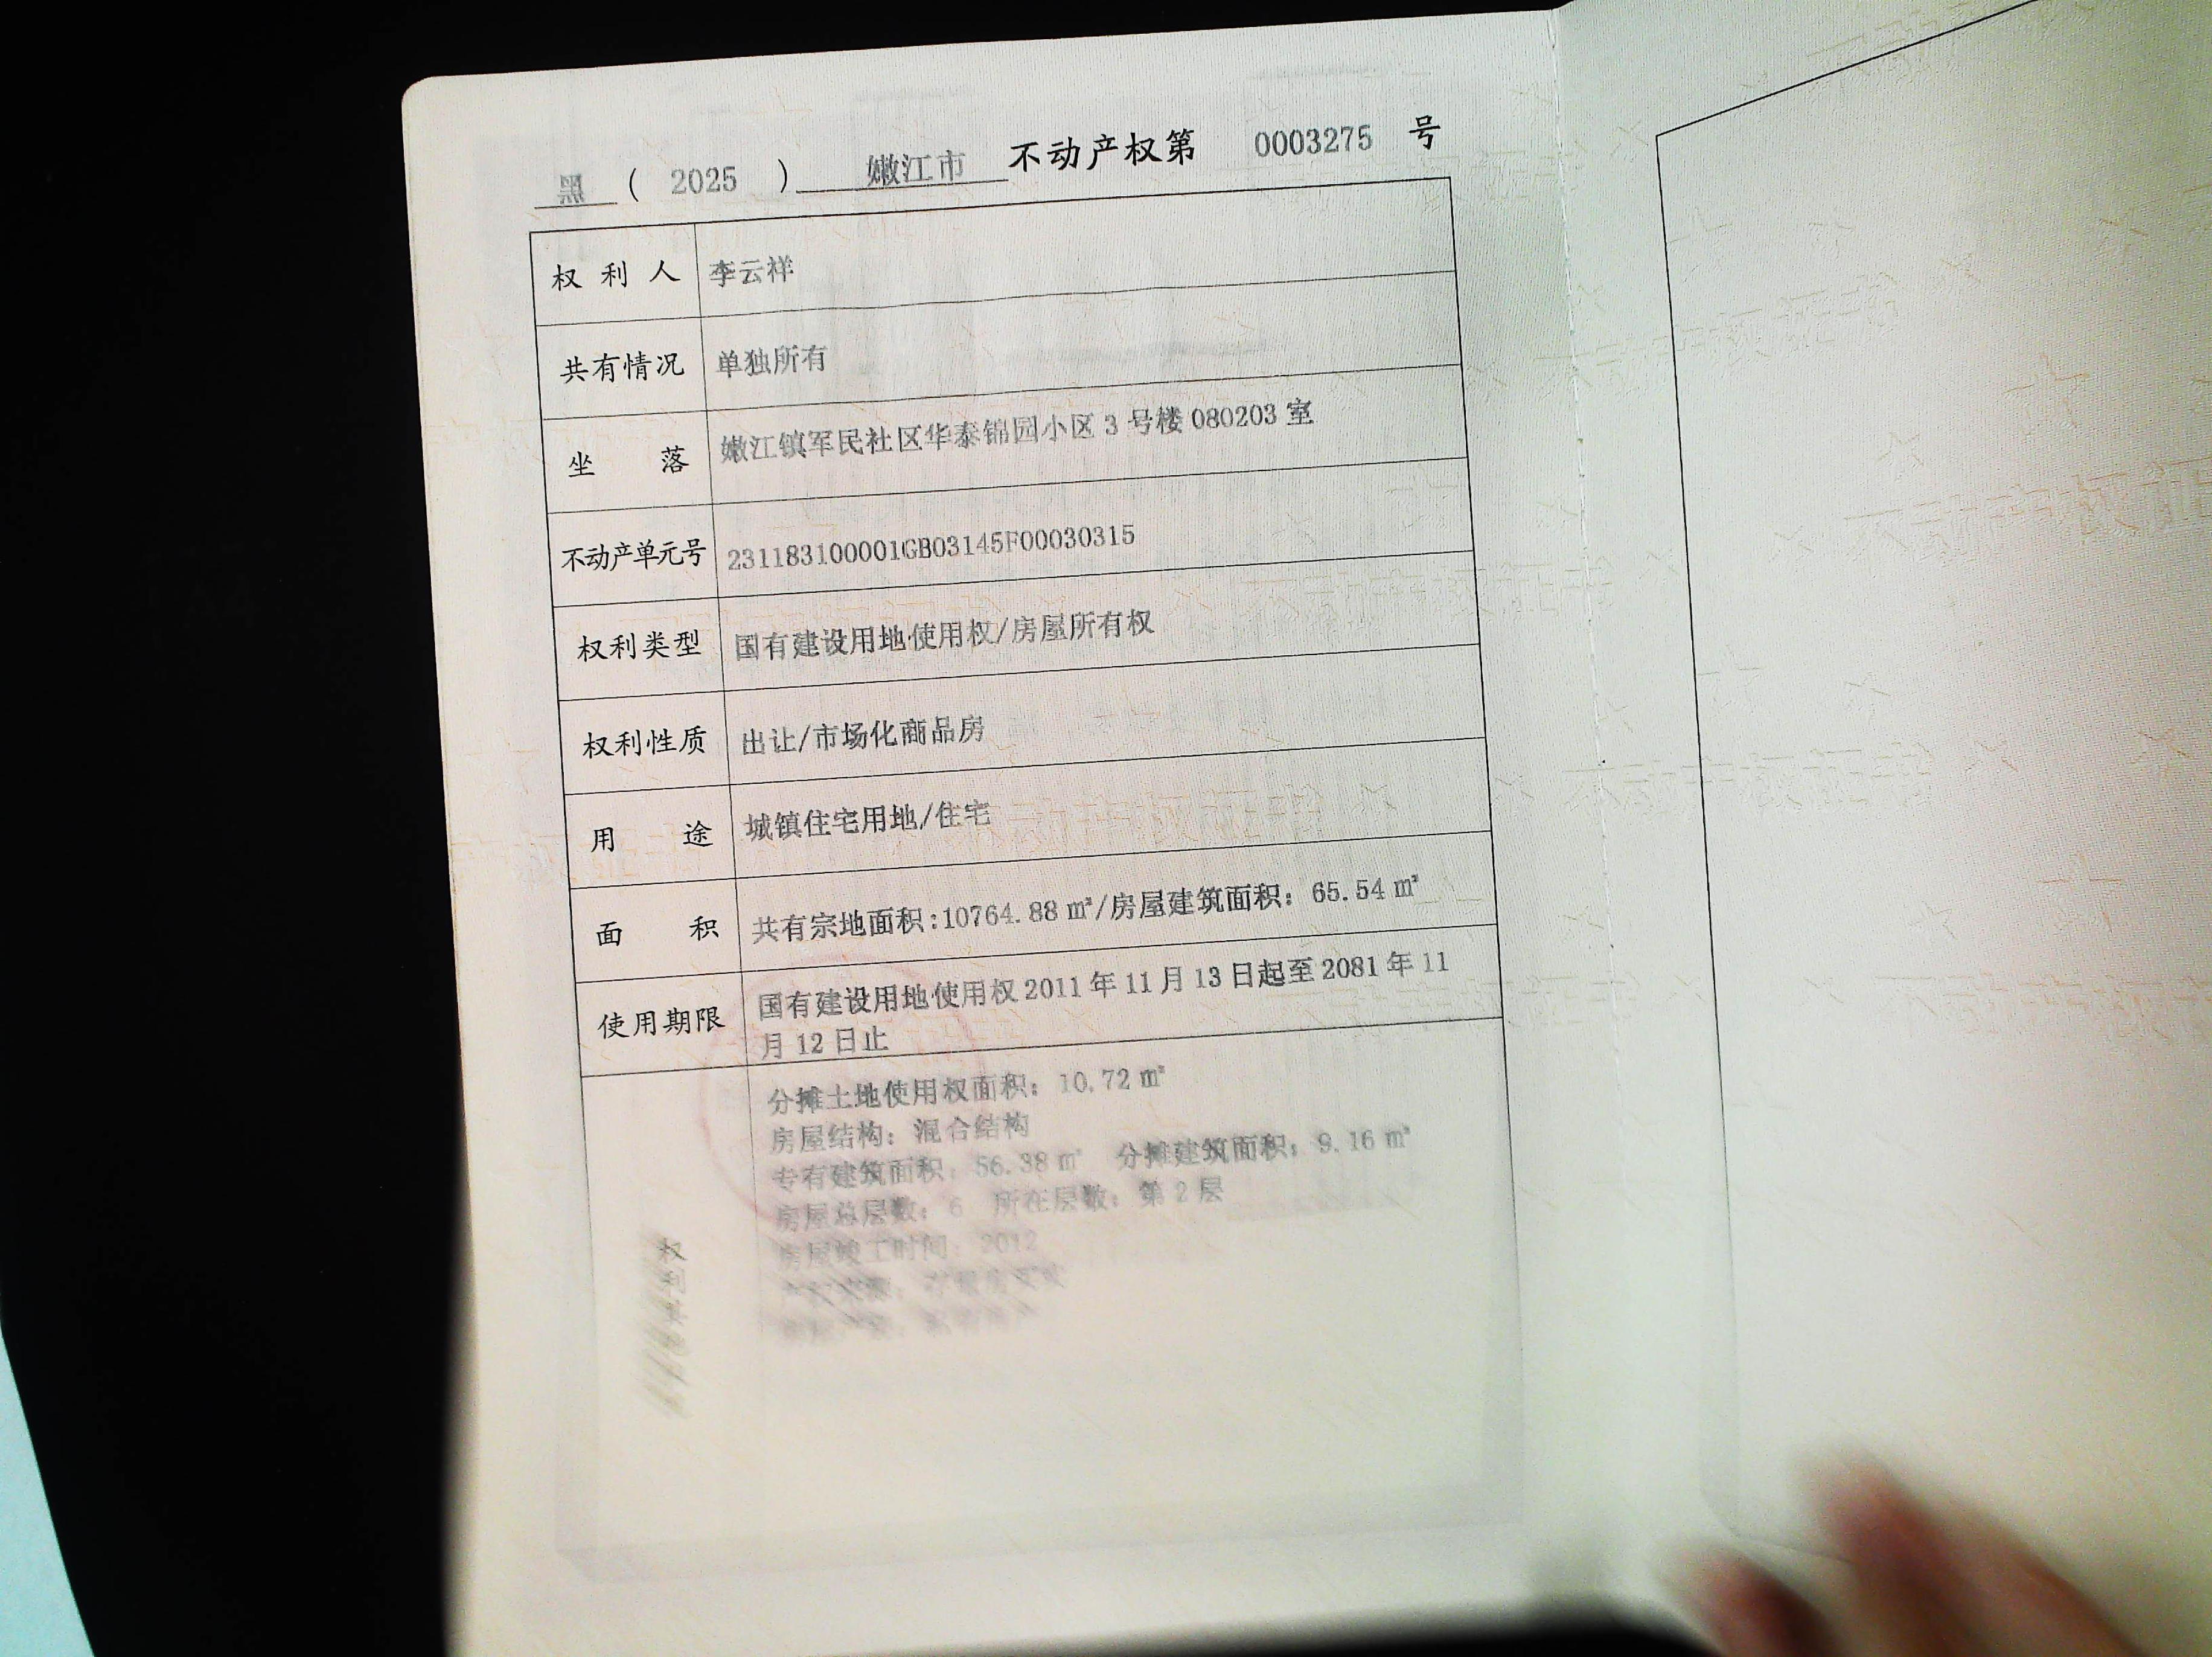 黑 ( 2025 ) 嫩江市 不动产权第 0003275 号
权利人 李云祥
共有情况 单独所有
坐落 嫩江镇军民社区华泰锦园小区 3 号楼 080203 室
不动产单元号 231183100001GB03145F00030315
权利类型 国有建设用地使用权/房屋所有权
权利性质 出让/市场化商品房
用途 城镇住宅用地/住宅
面积 共有宗地面积:10764.88 ㎡/房屋建筑面积：65.54 ㎡
使用期限 国有建设用地使用权 2011 年 11 月 13 日起至 2081 年 11
月 12 日止
分摊土地使用权面积：10.72 ㎡
房屋结构：混合结构
专有建筑面积：56.38 ㎡ 分摊建筑面积：9.16 ㎡
房屋总层数：6 所在层数：第 2 层
房屋竣工时间：2012
权利